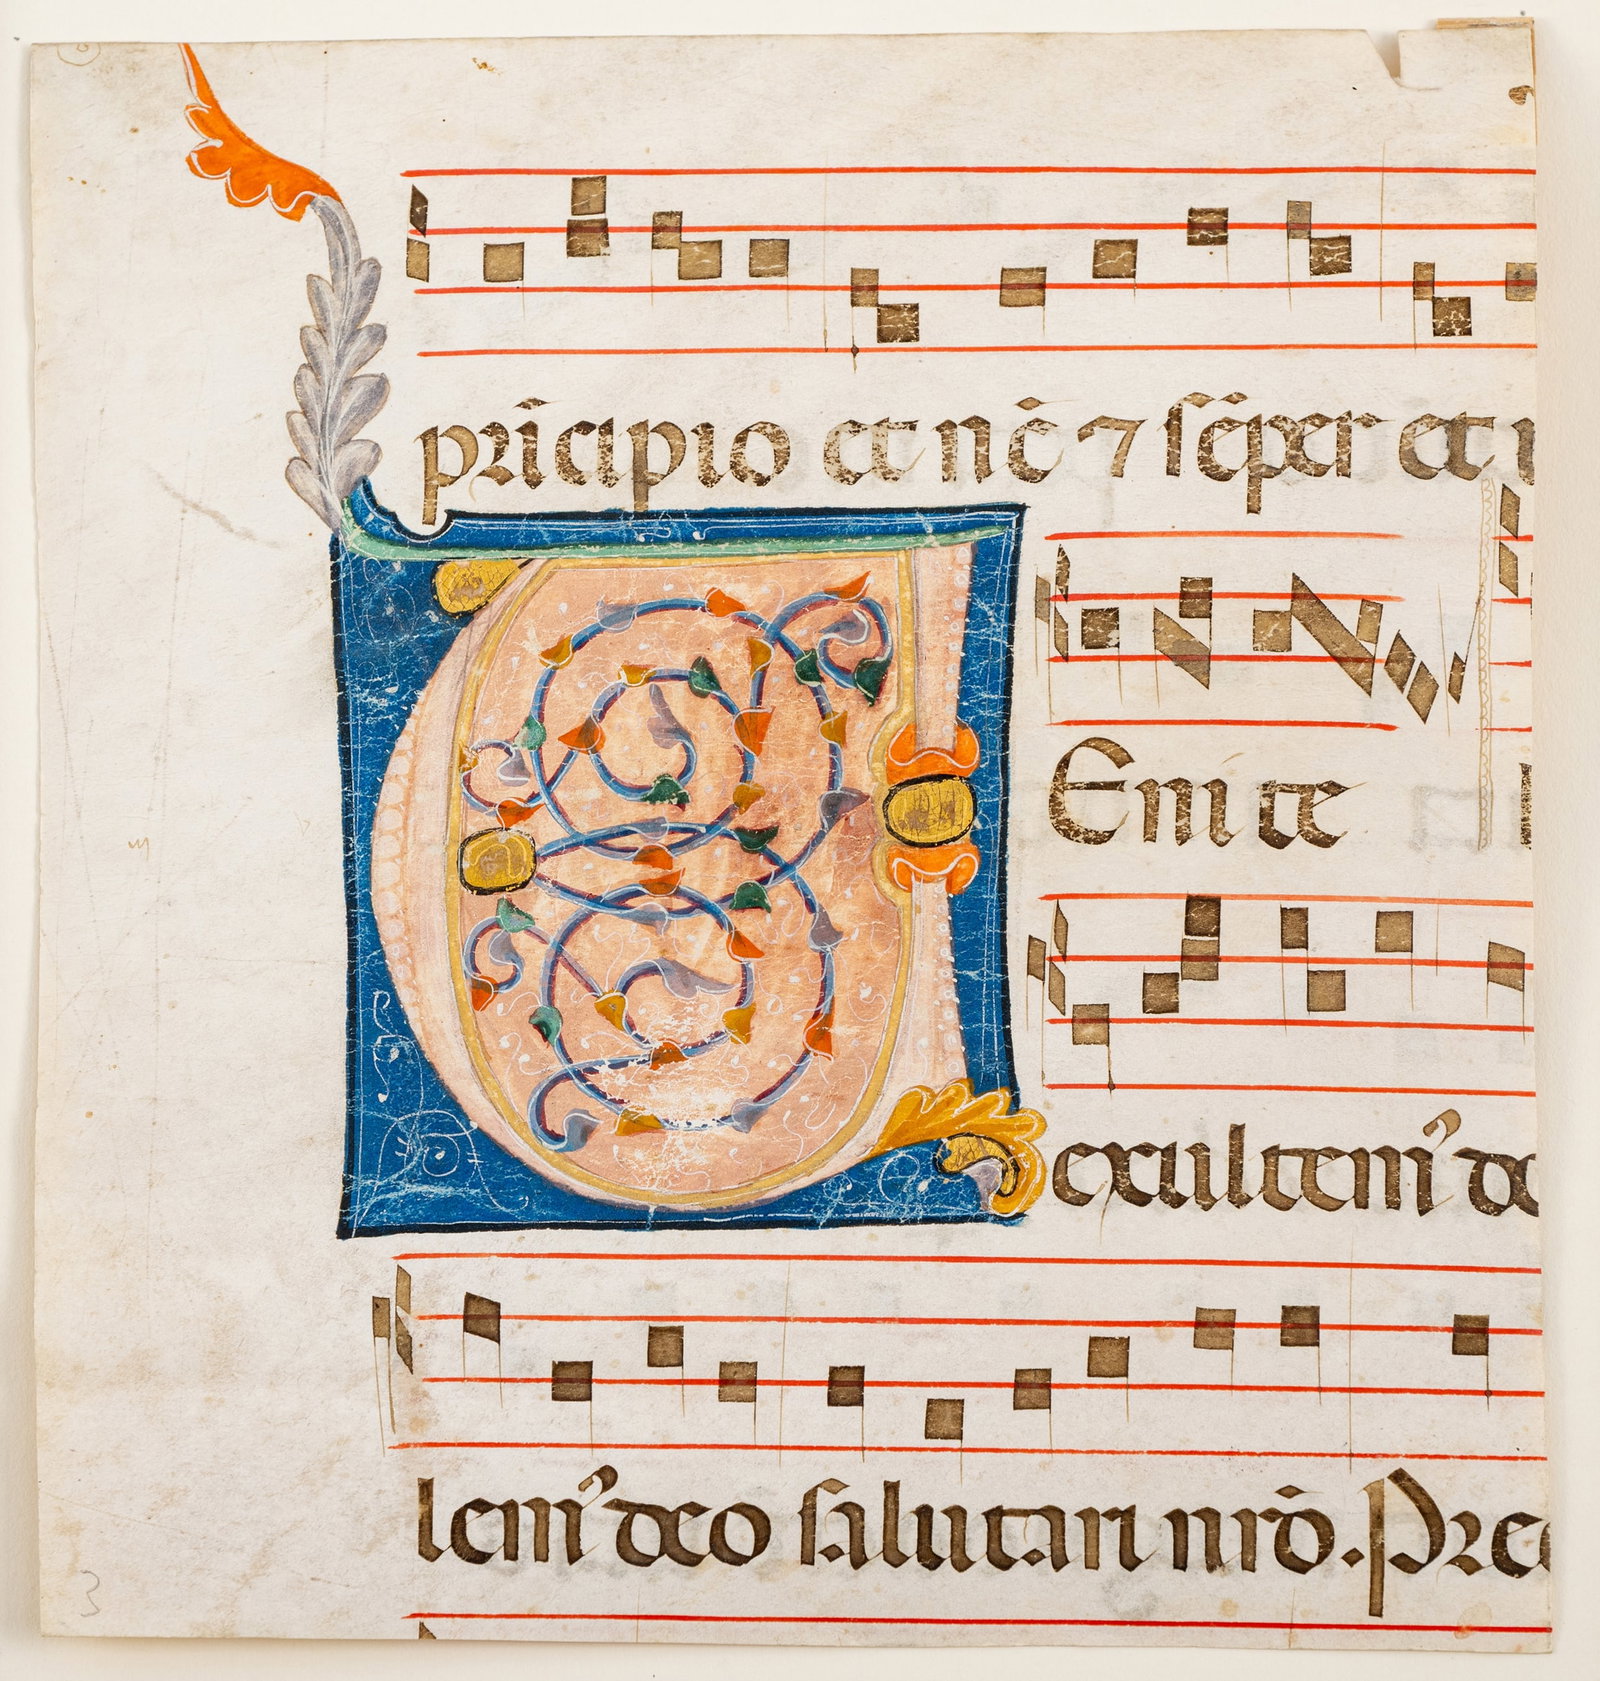 pri̅cipio et nc̅ ⁊ se̅per et
VEnite
exultem᾽ do
lem᾽ deo salutari nr̅o. Prec
3